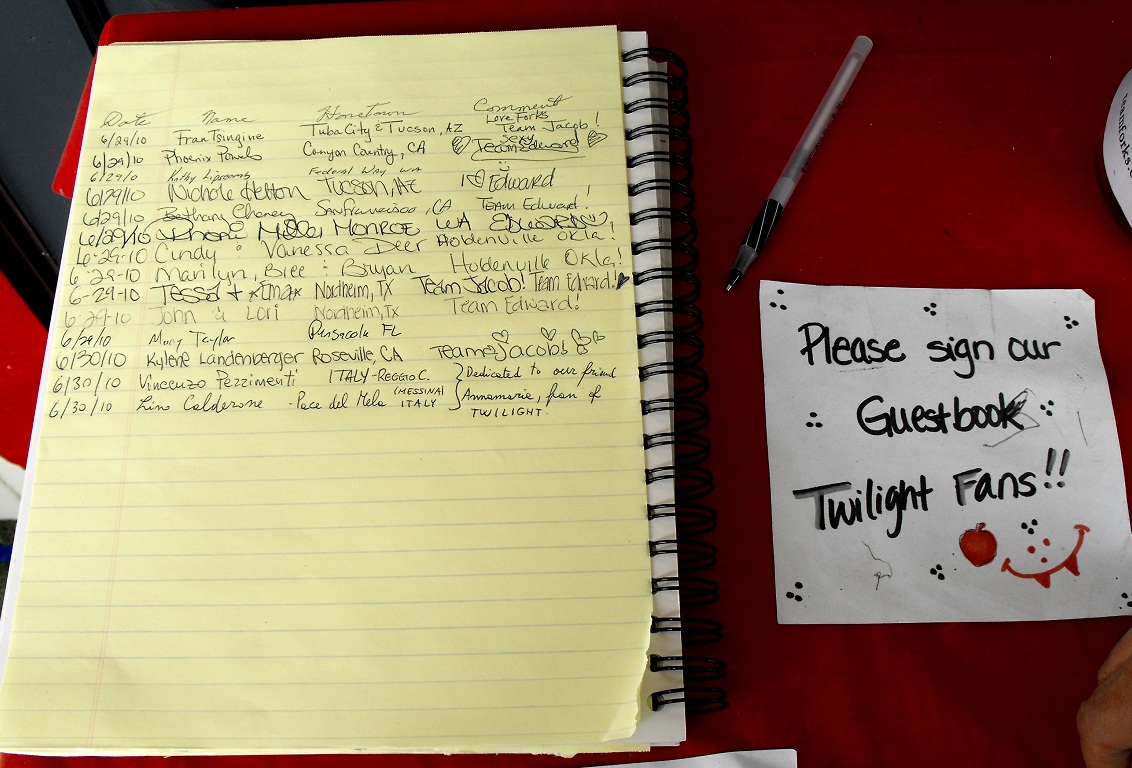 Date Name Hometown Comment
Love Forks
6/29/10 Fran Tsingine Tuba City & Tucson, AZ Team Jacob!
Sexy
6/29/10 Phoenix Canyon Country, CA Team Edward
6/29/10 Kathy Lipscomb Federal Way WA
6/29/10 Nichole Tucson, AZ I ♡ Edward
6/29/10 Bethany Cheney San Francisco, CA Team Edward!
6/29/10 Monroe WA Edward
6-29-10 Cindy & Vanessa Deer Holdenville Okla!
6-29-10 Marilyn, Bree & Bryan Holdenville Okla!
6-29-10 Tessa + Nordheim, TX Team Jacob! Team Edward!
6-29-10 John & Lori Nordheim, TX Team Edward!
6/29/10 Mary Taylor Pensacola FL
6/30/10 Kylene Landenberger Roseville, CA Team Jacob
6/30/10 Vincenzo Pezzimenti ITALY-REGGIO C. Dedicated to our friend
6/30/10 Lino Calderone - Pace del Mela (MESSINA) ITALY Annamaria, fan of
TWILIGHT.
Please sign our
Guestbook
Twilight Fans!!
teamforks.c